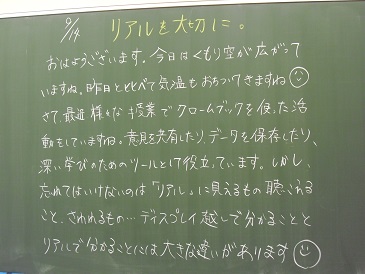 9/14 リアルを大切に。
おはようございます。今日はくもり空が広がって
いますね。昨日とくらべて気温もおちついてきますね
さて、最近様々な授業でクロームブックを使った活
動をしていますね。意見を共有したり、データを保存したり、
深い学びのためのツールとして役立っています。しかし、
忘れてはいけないのは「リアル」に見えるもの聴こえる
こと、さわれるもの…ディスプレイ越しで分かることと
リアルで分かることには大きな違いがあります